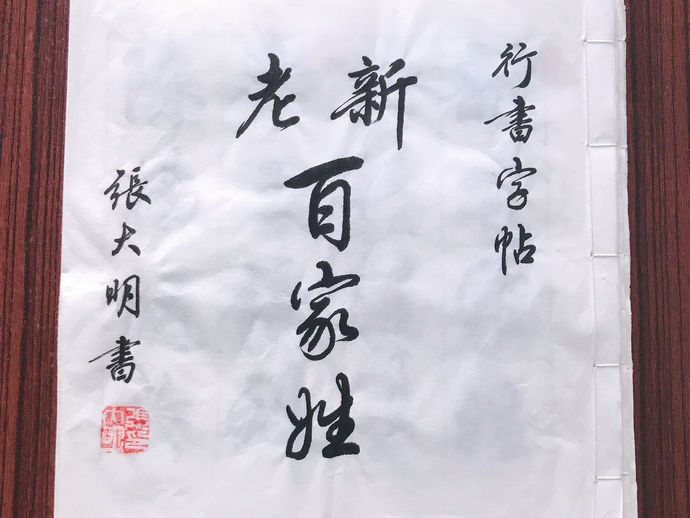 行書字帖
新老
百家姓
張大明書